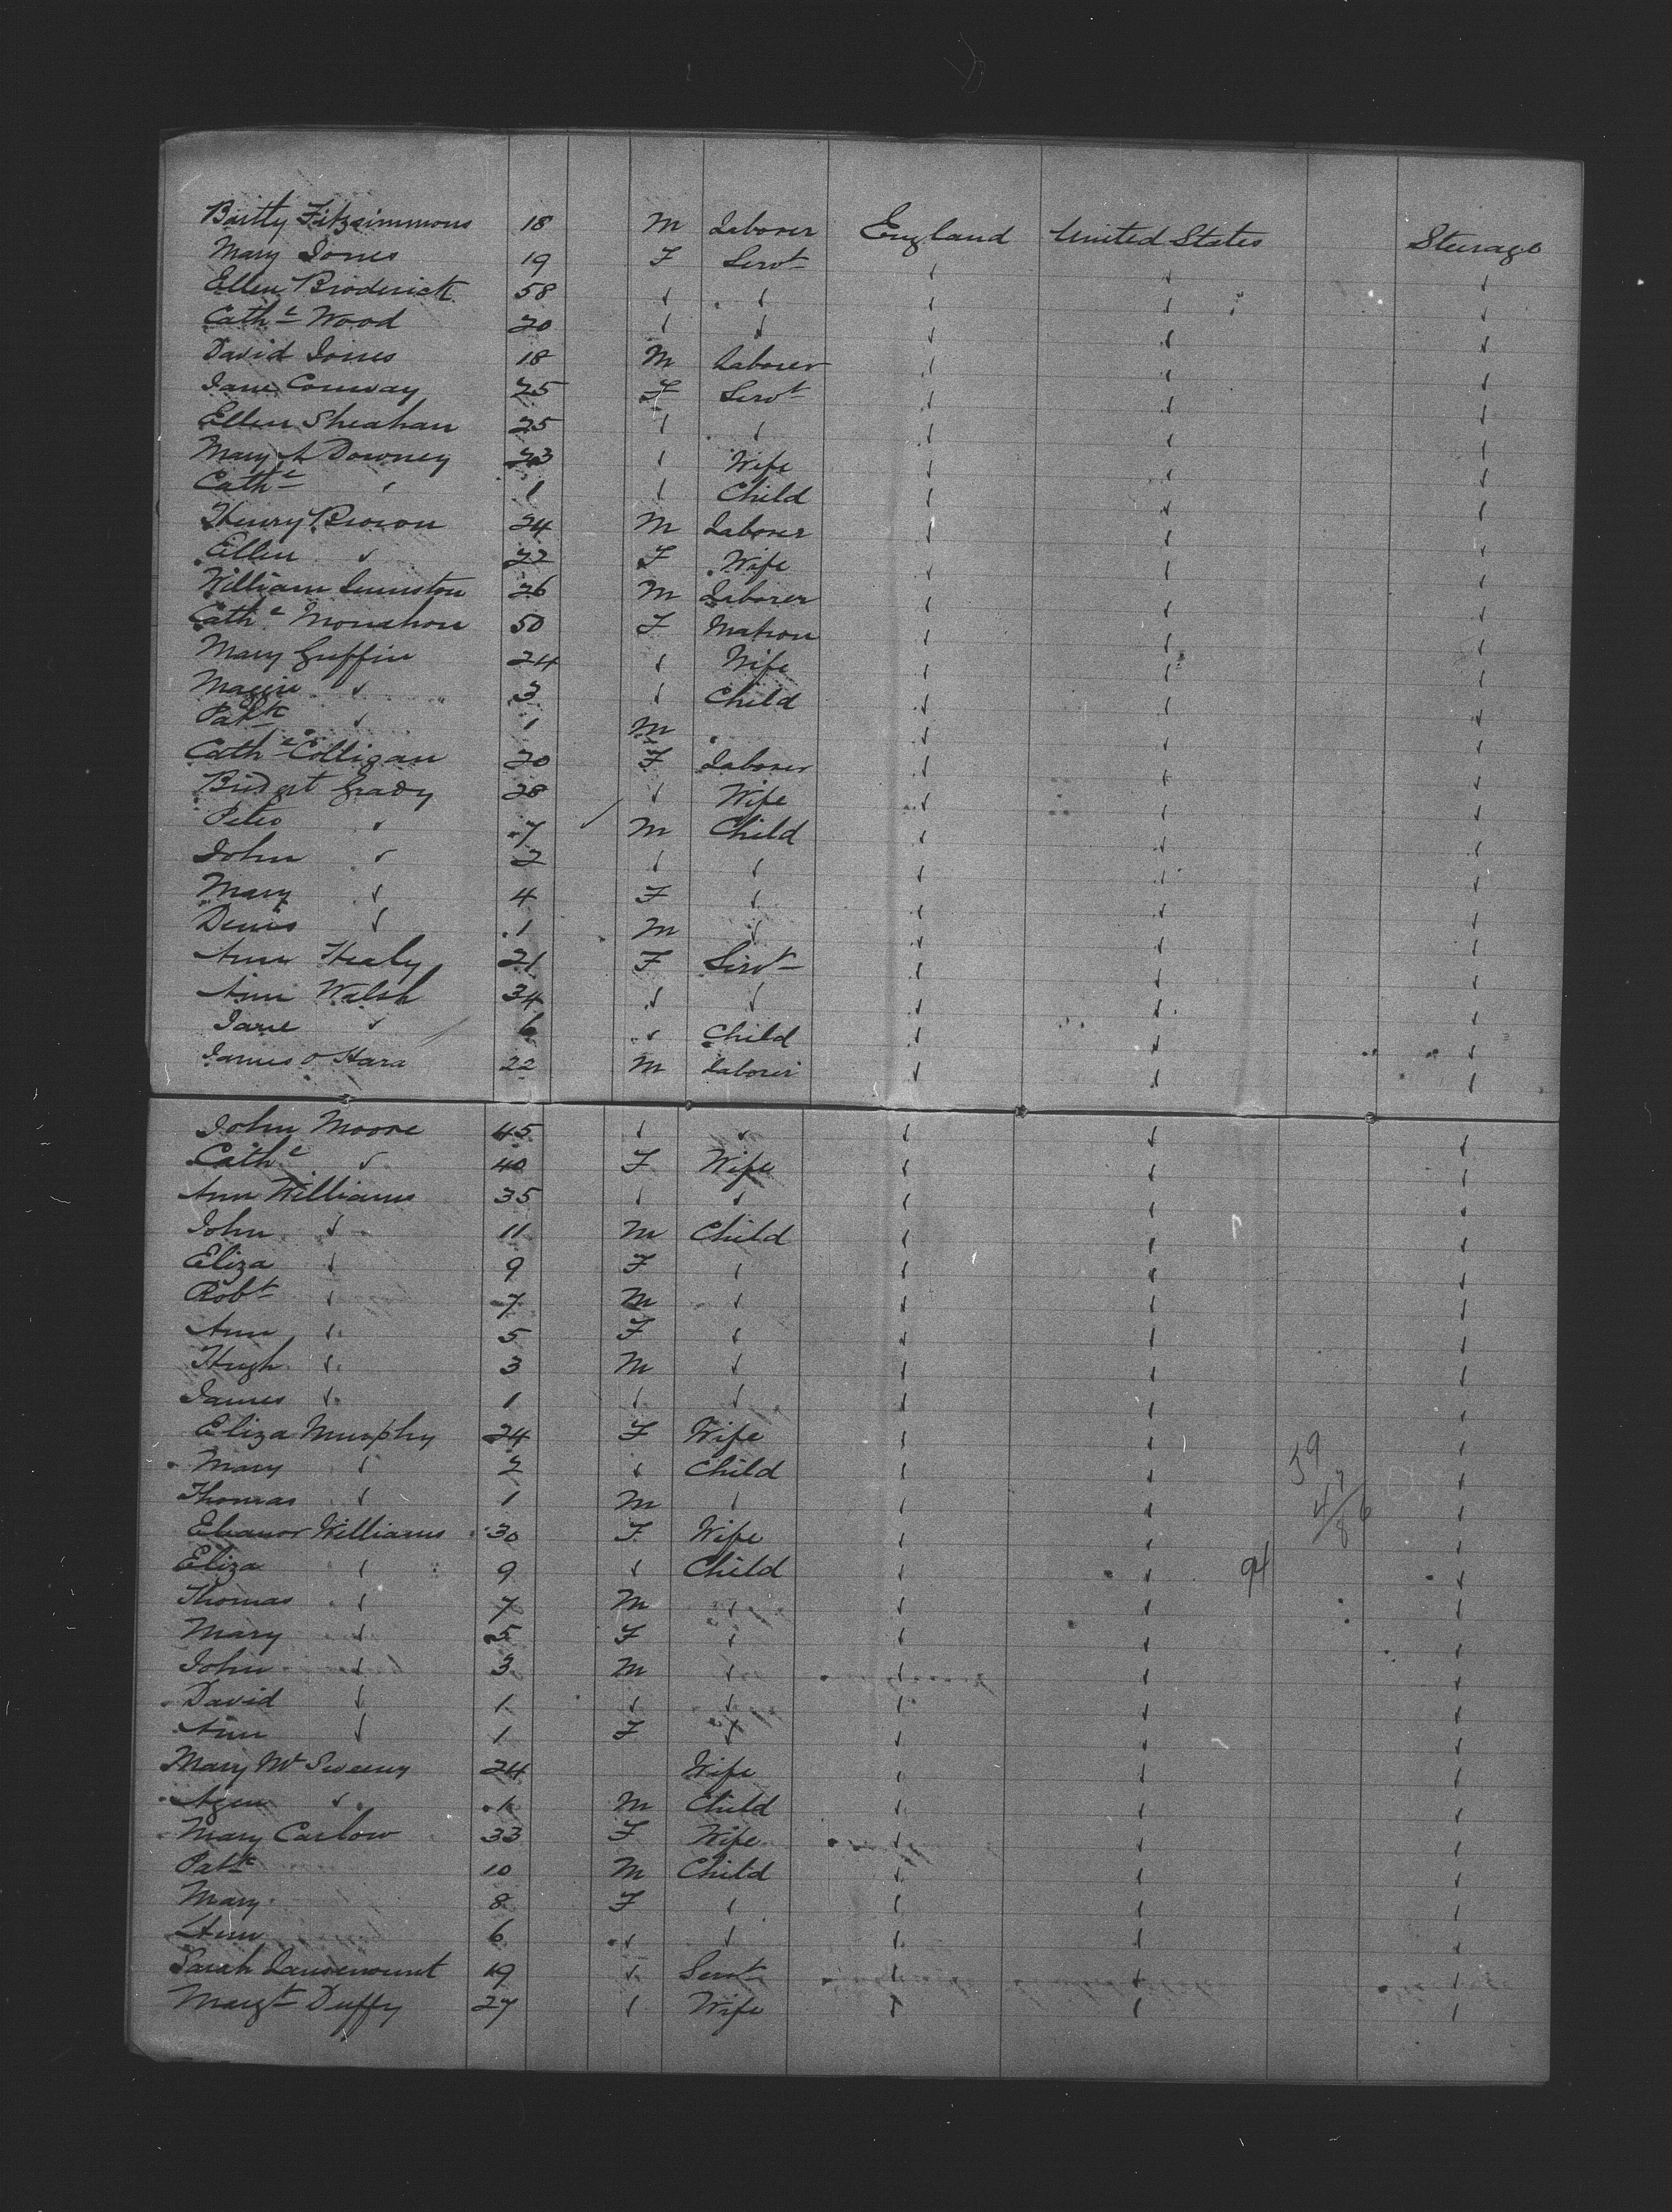 Bartty Fitzsimmons 18 M Laborer England United States Steerage
Mary Jones 19 F Servt ✓ ✓ ✓
Ellen Broderick 58 ✓ ✓ ✓ ✓ ✓
Cathe Wood 20 ✓ ✓ ✓ ✓ ✓
David Jones 18 M Laborer ✓ ✓ ✓
Jane Conway 25 F Servt ✓ ✓ ✓
Ellen Sheahan 25 ✓ ✓ ✓ ✓ ✓
Mary A Downey 23 ✓ Wife ✓ ✓ ✓
Cathe ✓ 1 ✓ Child ✓ ✓ ✓
Henry Brown 24 M Laborer ✓ ✓ ✓
Ellen ✓ 22 F Wife ✓ ✓ ✓
William 26 M Laborer ✓ ✓ ✓
Cathe Monahon 50 F Matron ✓ ✓ ✓
Mary Griffin 24 ✓ Wife ✓ ✓ ✓
Maggie ✓ 3 ✓ Child ✓ ✓ ✓
Patk ✓ 1 M ✓ ✓ ✓
Cathe Colligan 20 F Laborer ✓ ✓ ✓
Bridget Grady 28 ✓ Wife ✓ ✓ ✓
Peter ✓ 7 M Child ✓ ✓ ✓
John ✓ 2 ✓ ✓ ✓ ✓ ✓
Mary ✓ 4 F ✓ ✓ ✓ ✓
Denis ✓ 1 M ✓ ✓ ✓ ✓
Ann Healy 21 F Servt ✓ ✓ ✓
Ann Walsh 34 ✓ ✓ ✓ ✓ ✓
Jane ✓ 6 ✓ Child ✓ ✓ ✓
James O Hara 22 M Laborer ✓ ✓ ✓
John Moore 45 ✓ ✓ ✓ ✓ ✓
Cathe ✓ 40 F Wife ✓ ✓ ✓
Ann Williams 35 ✓ ✓ ✓ ✓ ✓
John ✓ 11 M Child ✓ ✓ ✓
Eliza ✓ 9 F ✓ ✓ ✓ ✓
Robt ✓ 7 M ✓ ✓ ✓ ✓
Ann ✓ 5 F ✓ ✓ ✓ ✓
Hugh ✓ 3 M ✓ ✓ ✓ ✓
James ✓ 1 ✓ ✓ ✓ ✓ ✓
Eliza Murphy 24 F Wife ✓ ✓ ✓
Mary ✓ 2 ✓ Child ✓ ✓ ✓
Thomas ✓ 1 M ✓ ✓ ✓ ✓
Eleanor Williams 30 F Wife ✓ ✓ ✓
Eliza ✓ 9 ✓ Child ✓ ✓ 94 ✓
Thomas ✓ 7 M ✓ ✓ ✓ ✓
Mary ✓ 5 F ✓ ✓ ✓ ✓
John ✓ 3 M ✓ ✓ ✓ ✓
David ✓ 1 ✓ ✓ ✓ ✓ ✓
Ann ✓ 1 F ✓ ✓ ✓ ✓
Mary Mc Sweeny 24 Wife ✓ ✓ ✓
✓ 1 M Child ✓ ✓ ✓
Mary Carlow 33 F Wife ✓ ✓ ✓
Patk 10 M Child ✓ ✓ ✓
Mary 8 F ✓ ✓ ✓ ✓
Ann 6 ✓ ✓ ✓ ✓ ✓
Sarah 19 ✓ Servt ✓ ✓ ✓
Margt Duffy 27 ✓ Wife ✓ ✓ ✓